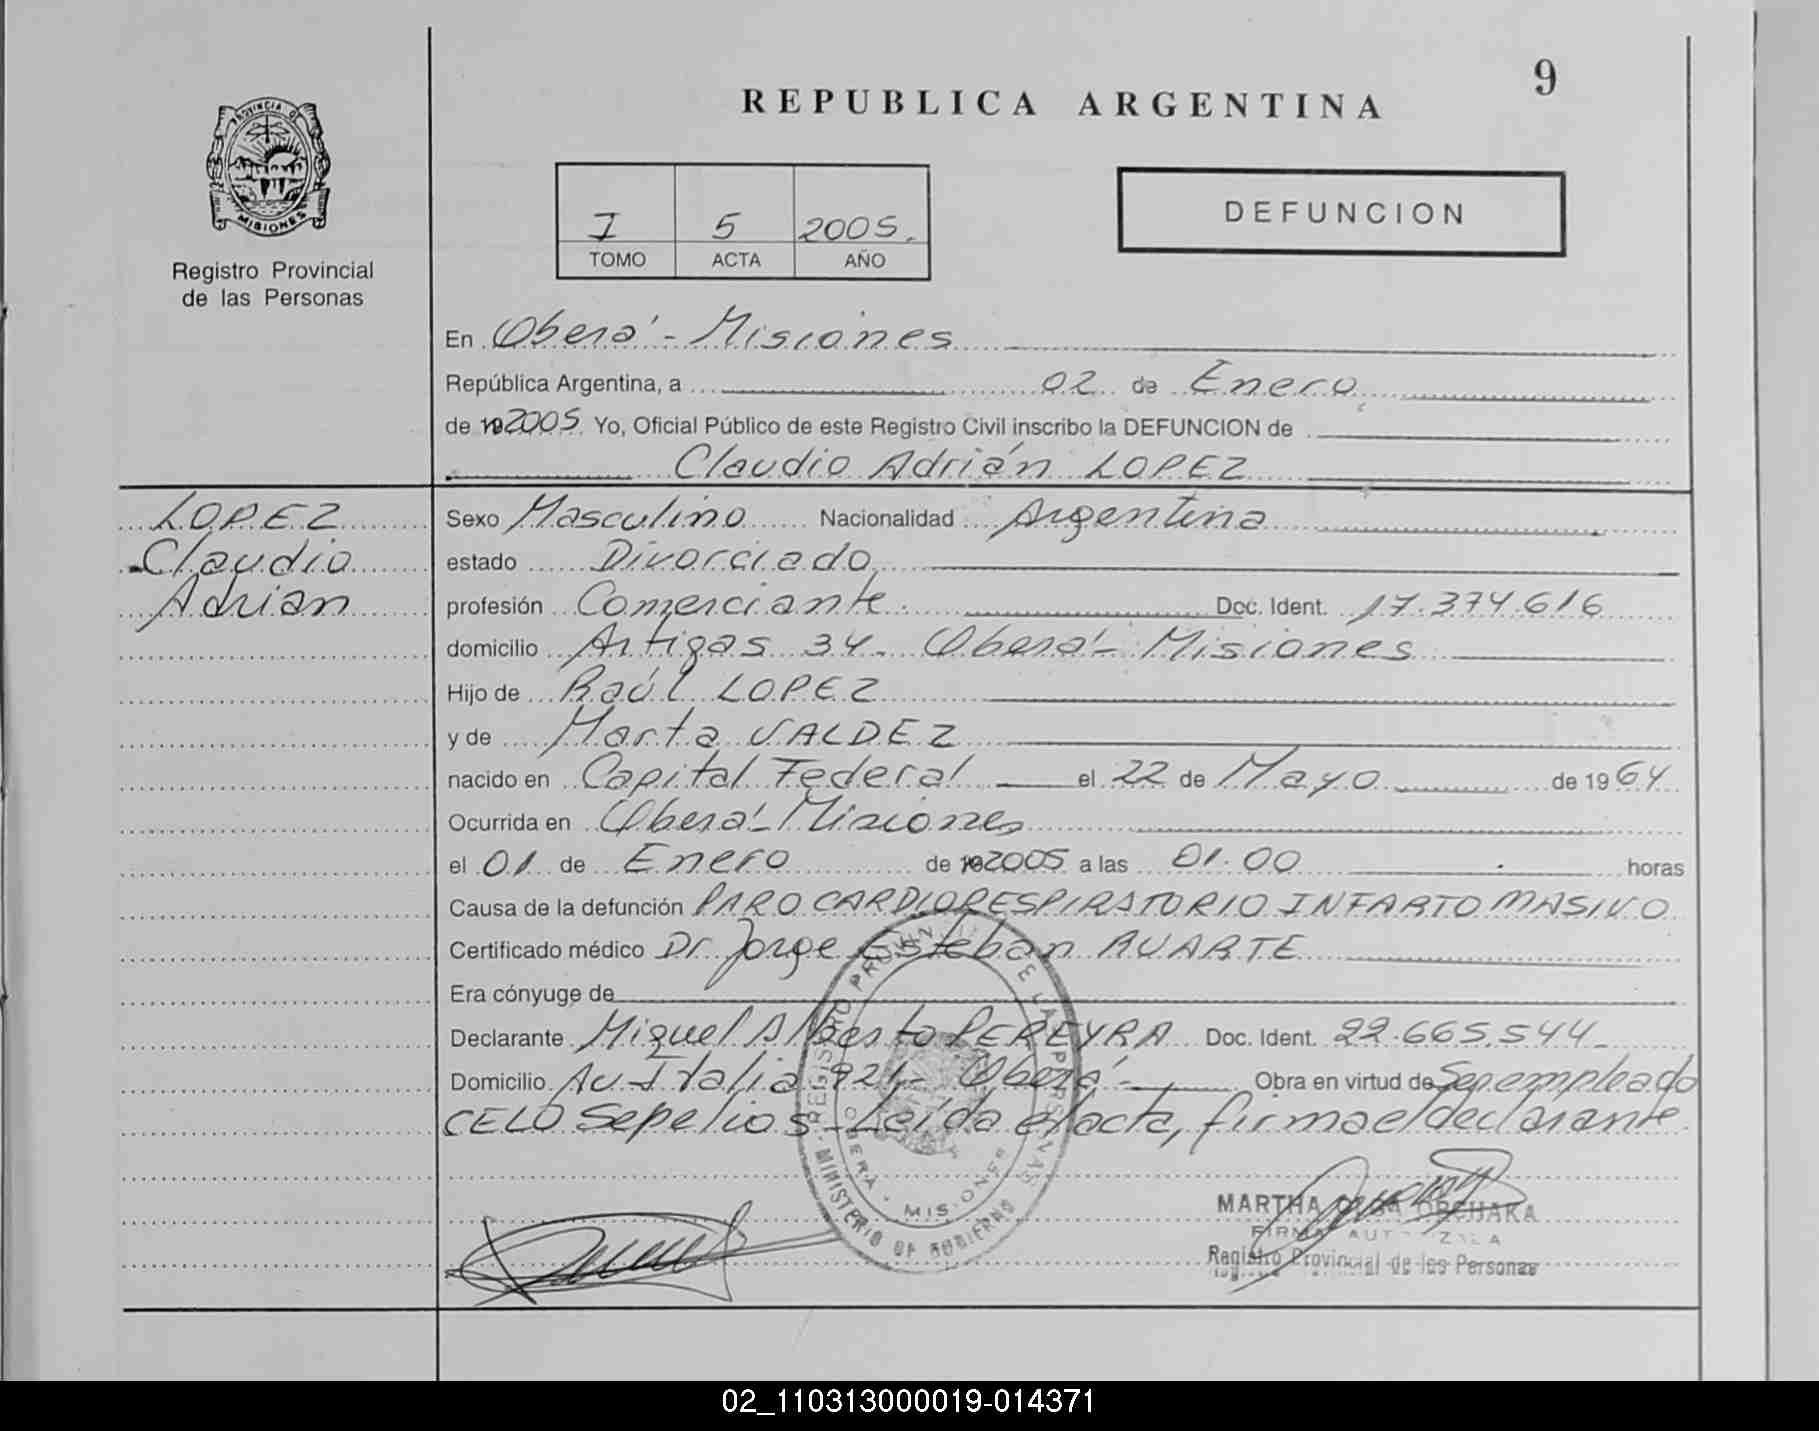 9
REPUBLICA ARGENTINA
PROVINCIA DE
MISIONES
Registro Provincial
de las Personas
I 5 2005.
TOMO ACTA AÑO
DEFUNCION
En Oberá - Misiones
República Argentina, a 02 de Enero
de 192005 Yo, Oficial Público de este Registro Civil inscribo la DEFUNCION de
Claudio Adrián LOPEZ
LOPEZ
Claudio
Adrian
Sexo Masculino Nacionalidad Argentina
estado Divorciado
profesión Comerciante. Doc. Ident. 17.374.616
domicilio Artigas 34- Oberá- Misiones
Hijo de Raúl LOPEZ
y de Marta VALDEZ
nacido en Capital Federal el 22 de Mayo de 1964
Ocurrida en Oberá- Misiones
el 01 de Enero de 192005 a las 01.00 horas
Causa de la defunción PARO CARDIORESPIRATORIO INFARTO MASIVO
Certificado médico Dr Jorge Esteban RUARTE
Era cónyuge de
Declarante Miguel Alberto PEREYRA Doc. Ident. 22.665.544-
Domicilio Av-Italia 921- Oberá- Obra en virtud de Ser empleado
CELO Sepelios- Leída el acta, firma el declarante
REGISTRO PROVINCIAL DE LAS PERSONAS
MINISTERIO DE GOBIERNO
OBERA - MISIONES
MARTHA ORCHAKA
FIRMA AUTORIZADA
Registro Provincial de las Personas
02_110313000019-014371